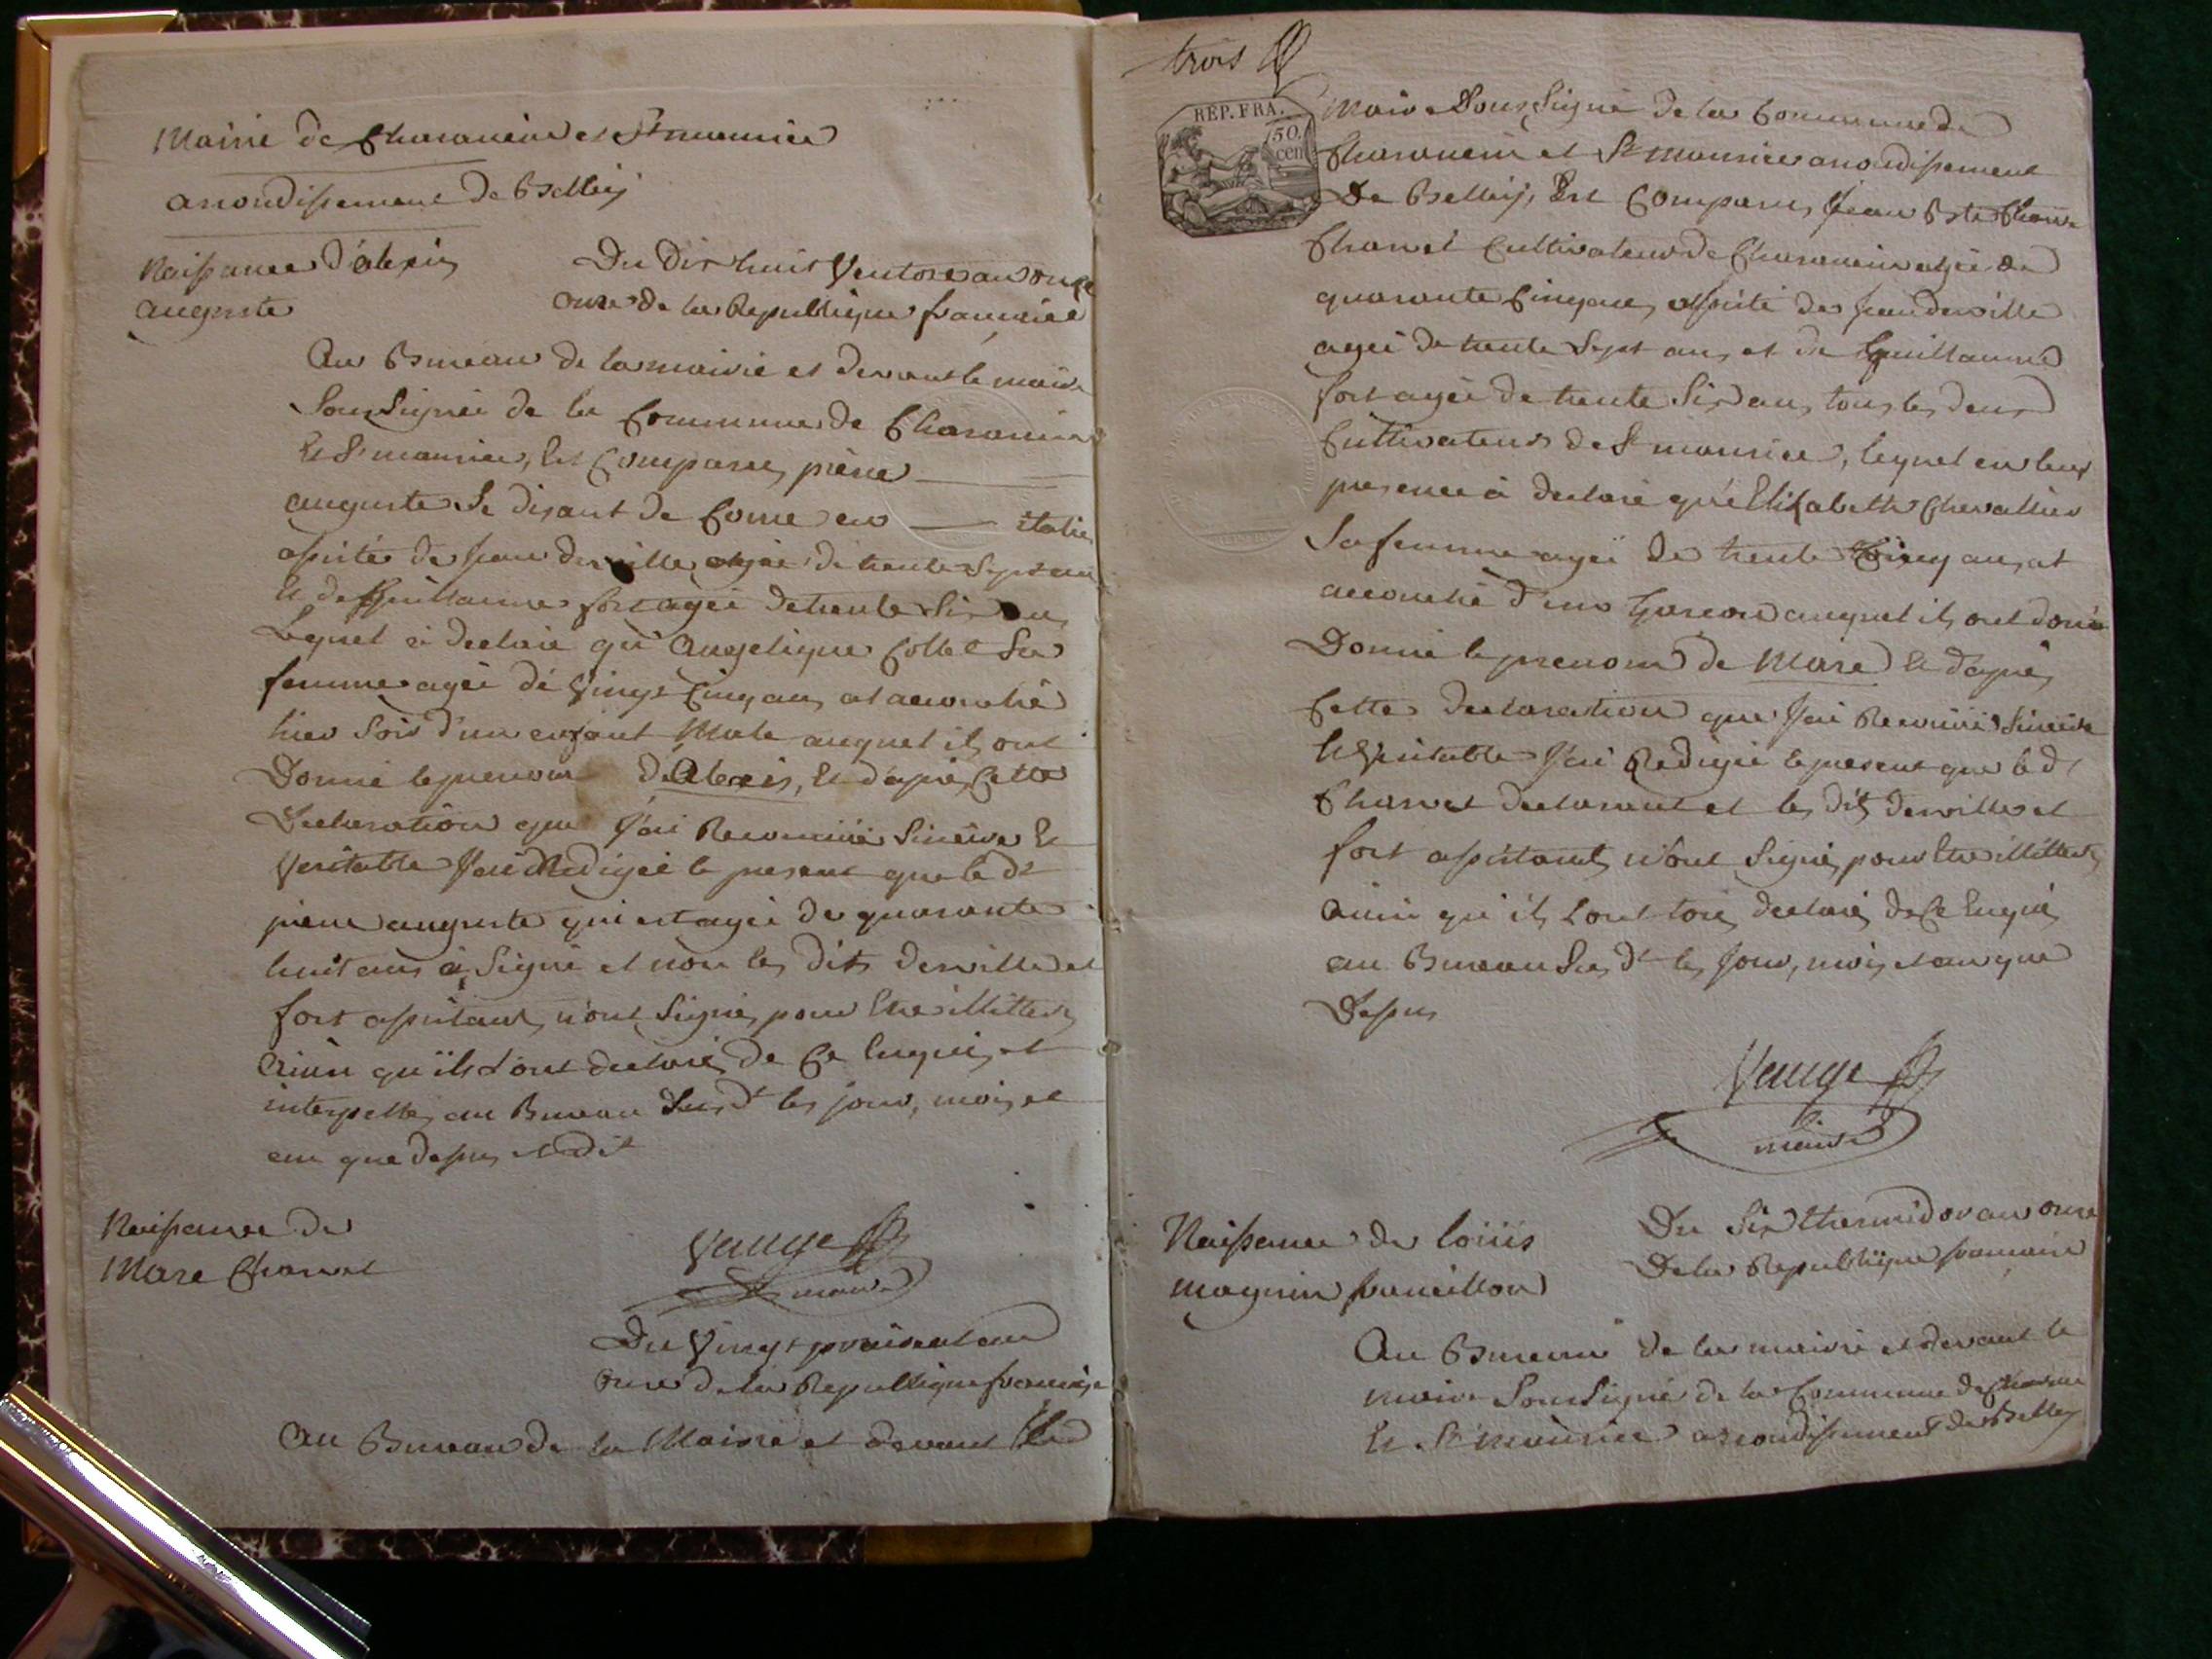 Mairie de Charancin et St maurice
arrondissement de Belley
Naissance d'alexis
auguste
Du Dix huit Ventose an onze
onze de la Republique francaise
Au Bureau de la mairie et devant le maire
Soussigné de la Commune de Charancin
Et St maurice, Est Comparu, pierre
auguste Se disant de Come en italie
assisté de jean derville agée de trente Sept ans
Et de Guillaume fort agée de trente Six ans
Lequel à declaré qu'Angelique Collet Sa
femme agée de Vingt Cinq ans at accouché
hier Soir d'un enfant Male auquel ils ont
Donné le prenom d'Alexis, Et d'apré Cette
Declaration que J'ai Reconnüe Sincere Et
Veritable J'ai Redigée le present que le dt
pierre auguste qui est agée de quarante
huit ans à Signé et non les dits derville et
fort assistants n'ont Signé, pour Etre illitterés
Ainsi qu'ils L'ont declaré de Ce Enquis et
interpellés au Bureau Sus dt les jour, mois et
an que dessus et dit
Vauge
maire
Naissance de
Marc Charvet
Du Vingt prairial an
Onze de la Republique francaise
Au Bureau de la Mairie et devant Le
trois
REP. FRA.
50.
cen
Maire Sous Signé de la Commune de
Charancin et St Maurice arrondissement
De Belley, Est Comparu, Jean Bste
Charvet Cultivateur de Charancin agée de
quarante Cinq ans, assisté de jean derville
agée de trente Sept ans et de Guillaume
fort agée de trente Six ans, tous les deux
Cultivateurs de St maurice, lequel en leur
presence à declaré qu'Elizabeth Chevallier
Sa femme agée de trente Cinq ans, at
accouché d'un Garcon auquel ils ont donné
Donné le prenom de Marc Et d'apré
Cette declaration que J'ai Reconnüe Sincere
Et Veritable J'ai Redigée le present que le dt
Charvet declarant et les dits derville et
fort assistants n'ont Signé, pour Etre illitterés
Ainsi qu'ils L'ont declaré, de Ce Enquis
au Bureau Sus dt les Jour, mois et an que
Dessus
Vauge
maire
Naissance de loüis
magnin francillon
Du Six thermidor an onze
De la Republique francaise
Au Bureau de la mairie et devant le
maire Soussigné de la Commune de
Et St Maurice arrondissement de Belley